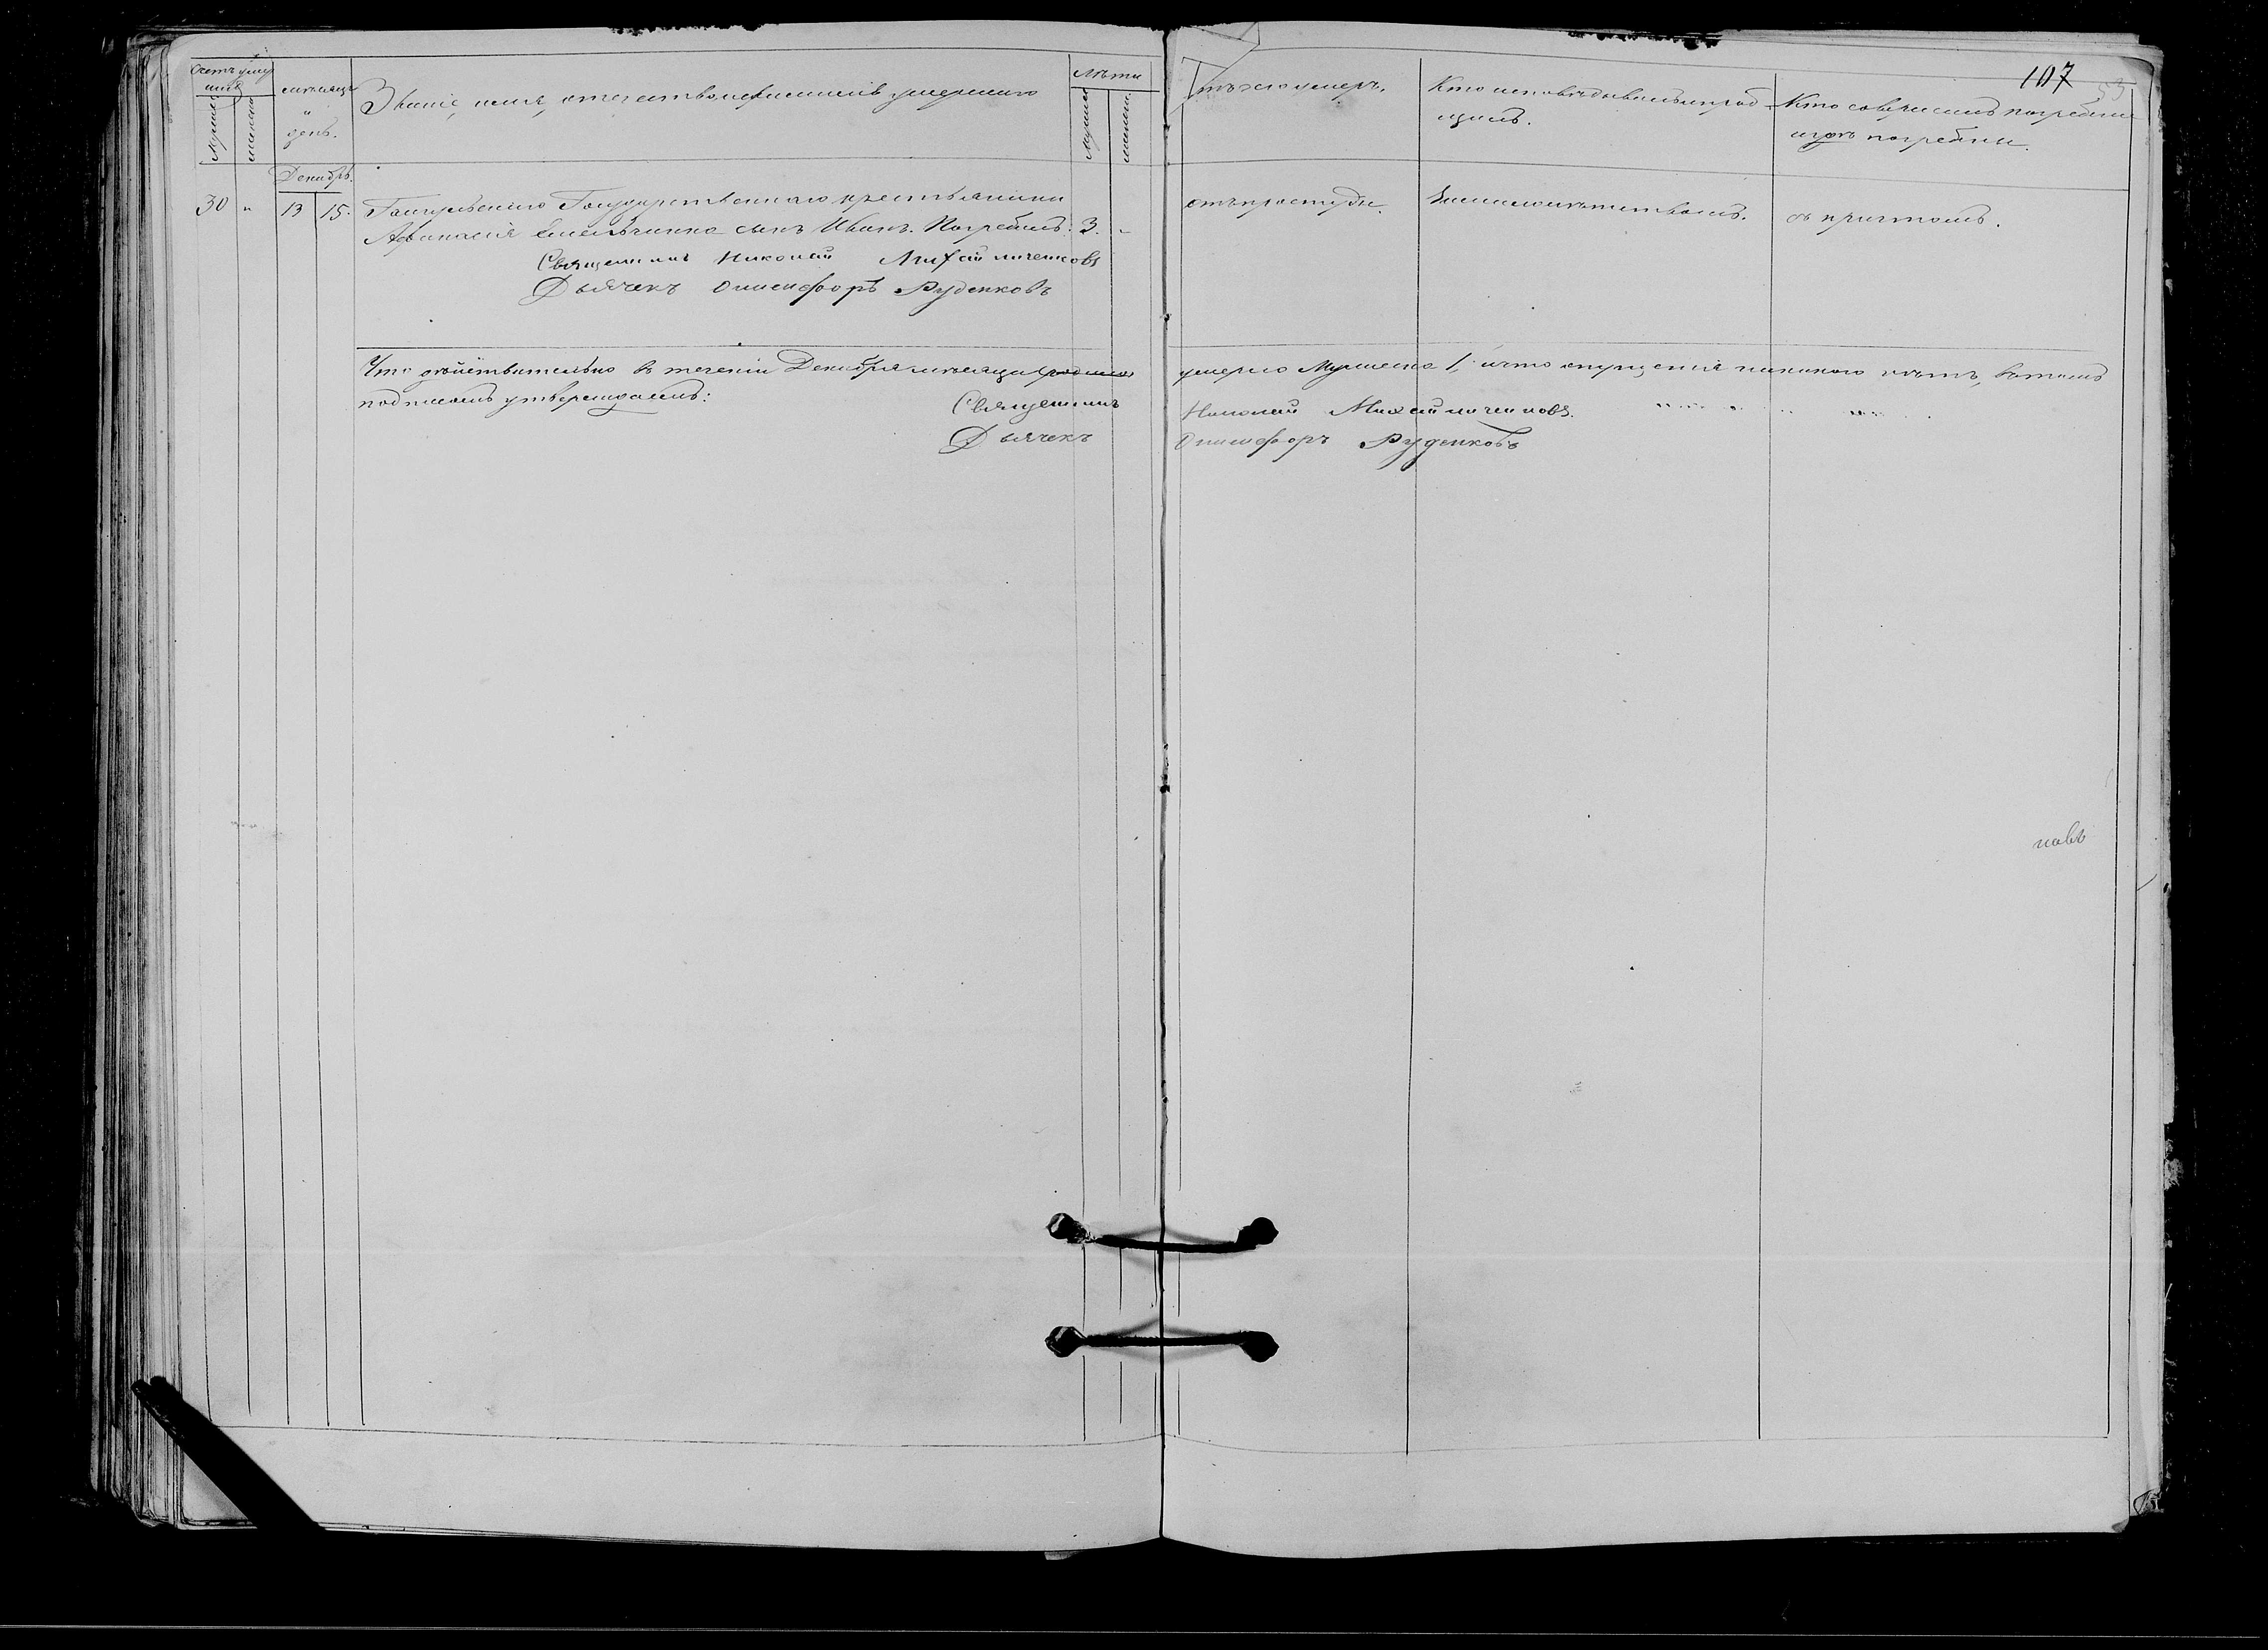 107
53
Счетъ умер
шихъ
Мужеск
женска
мѣсяцъ
и
день.
Званіе, имя, отечество и фамилія умершаго
Лѣта
Мужеск
женск
Отъ чего умеръ.
Кто исповѣдывалъ и пріоб-
щилъ.
Кто совершилъ погребеніе
и гдѣ погребены.
Декабрь.
30 " 13 15. Государственнаго крестьянина
Афанасія Емельченка сынъ Иванъ. Погребалъ: 3. "
отъ простуды.
съ причтомъ.
Священникъ Николай Михайличенковъ
Дьячекъ Онисифоръ Руденковъ
Что дѣйствительно въ теченіи Декабря мѣсяца родилось умерло Мужеска 1, и что опущенія никакого нѣтъ, въ томъ
подписомъ утверждаемъ:
Священникъ Николай Михайличенковъ.
Дьячекъ Онисифоръ Руденковъ
новъ